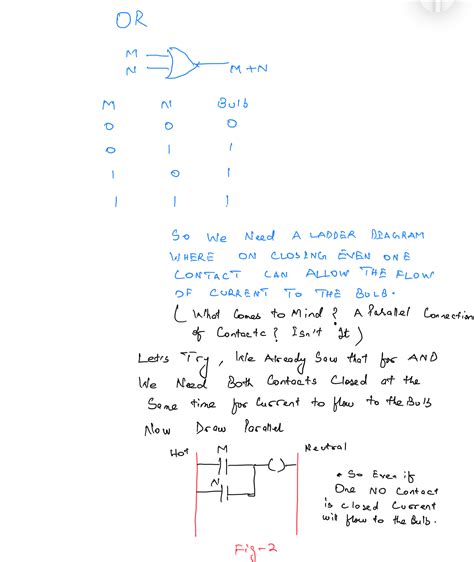 OR
M
N
M+N
M N Bulb
0 0 0
0 1 1
1 0 1
1 1 1
So We Need A LADDER DIAGRAM
WHERE ON CLOSING EVEN ONE
CONTACT CAN ALLOW THE FLOW
OF CURRENT TO THE BULB.
(What Comes to Mind? A Parallel Connection
of Contacts? Isn't It)
Let's Try, We Already Saw that for AND
We Need Both Contacts Closed at the
Same time for Current to flow to the Bulb
Now Draw Parallel
Hot M Neutral
N
• So Even if
One NO Contact
is closed Current
will flow to the Bulb.
Fig-2